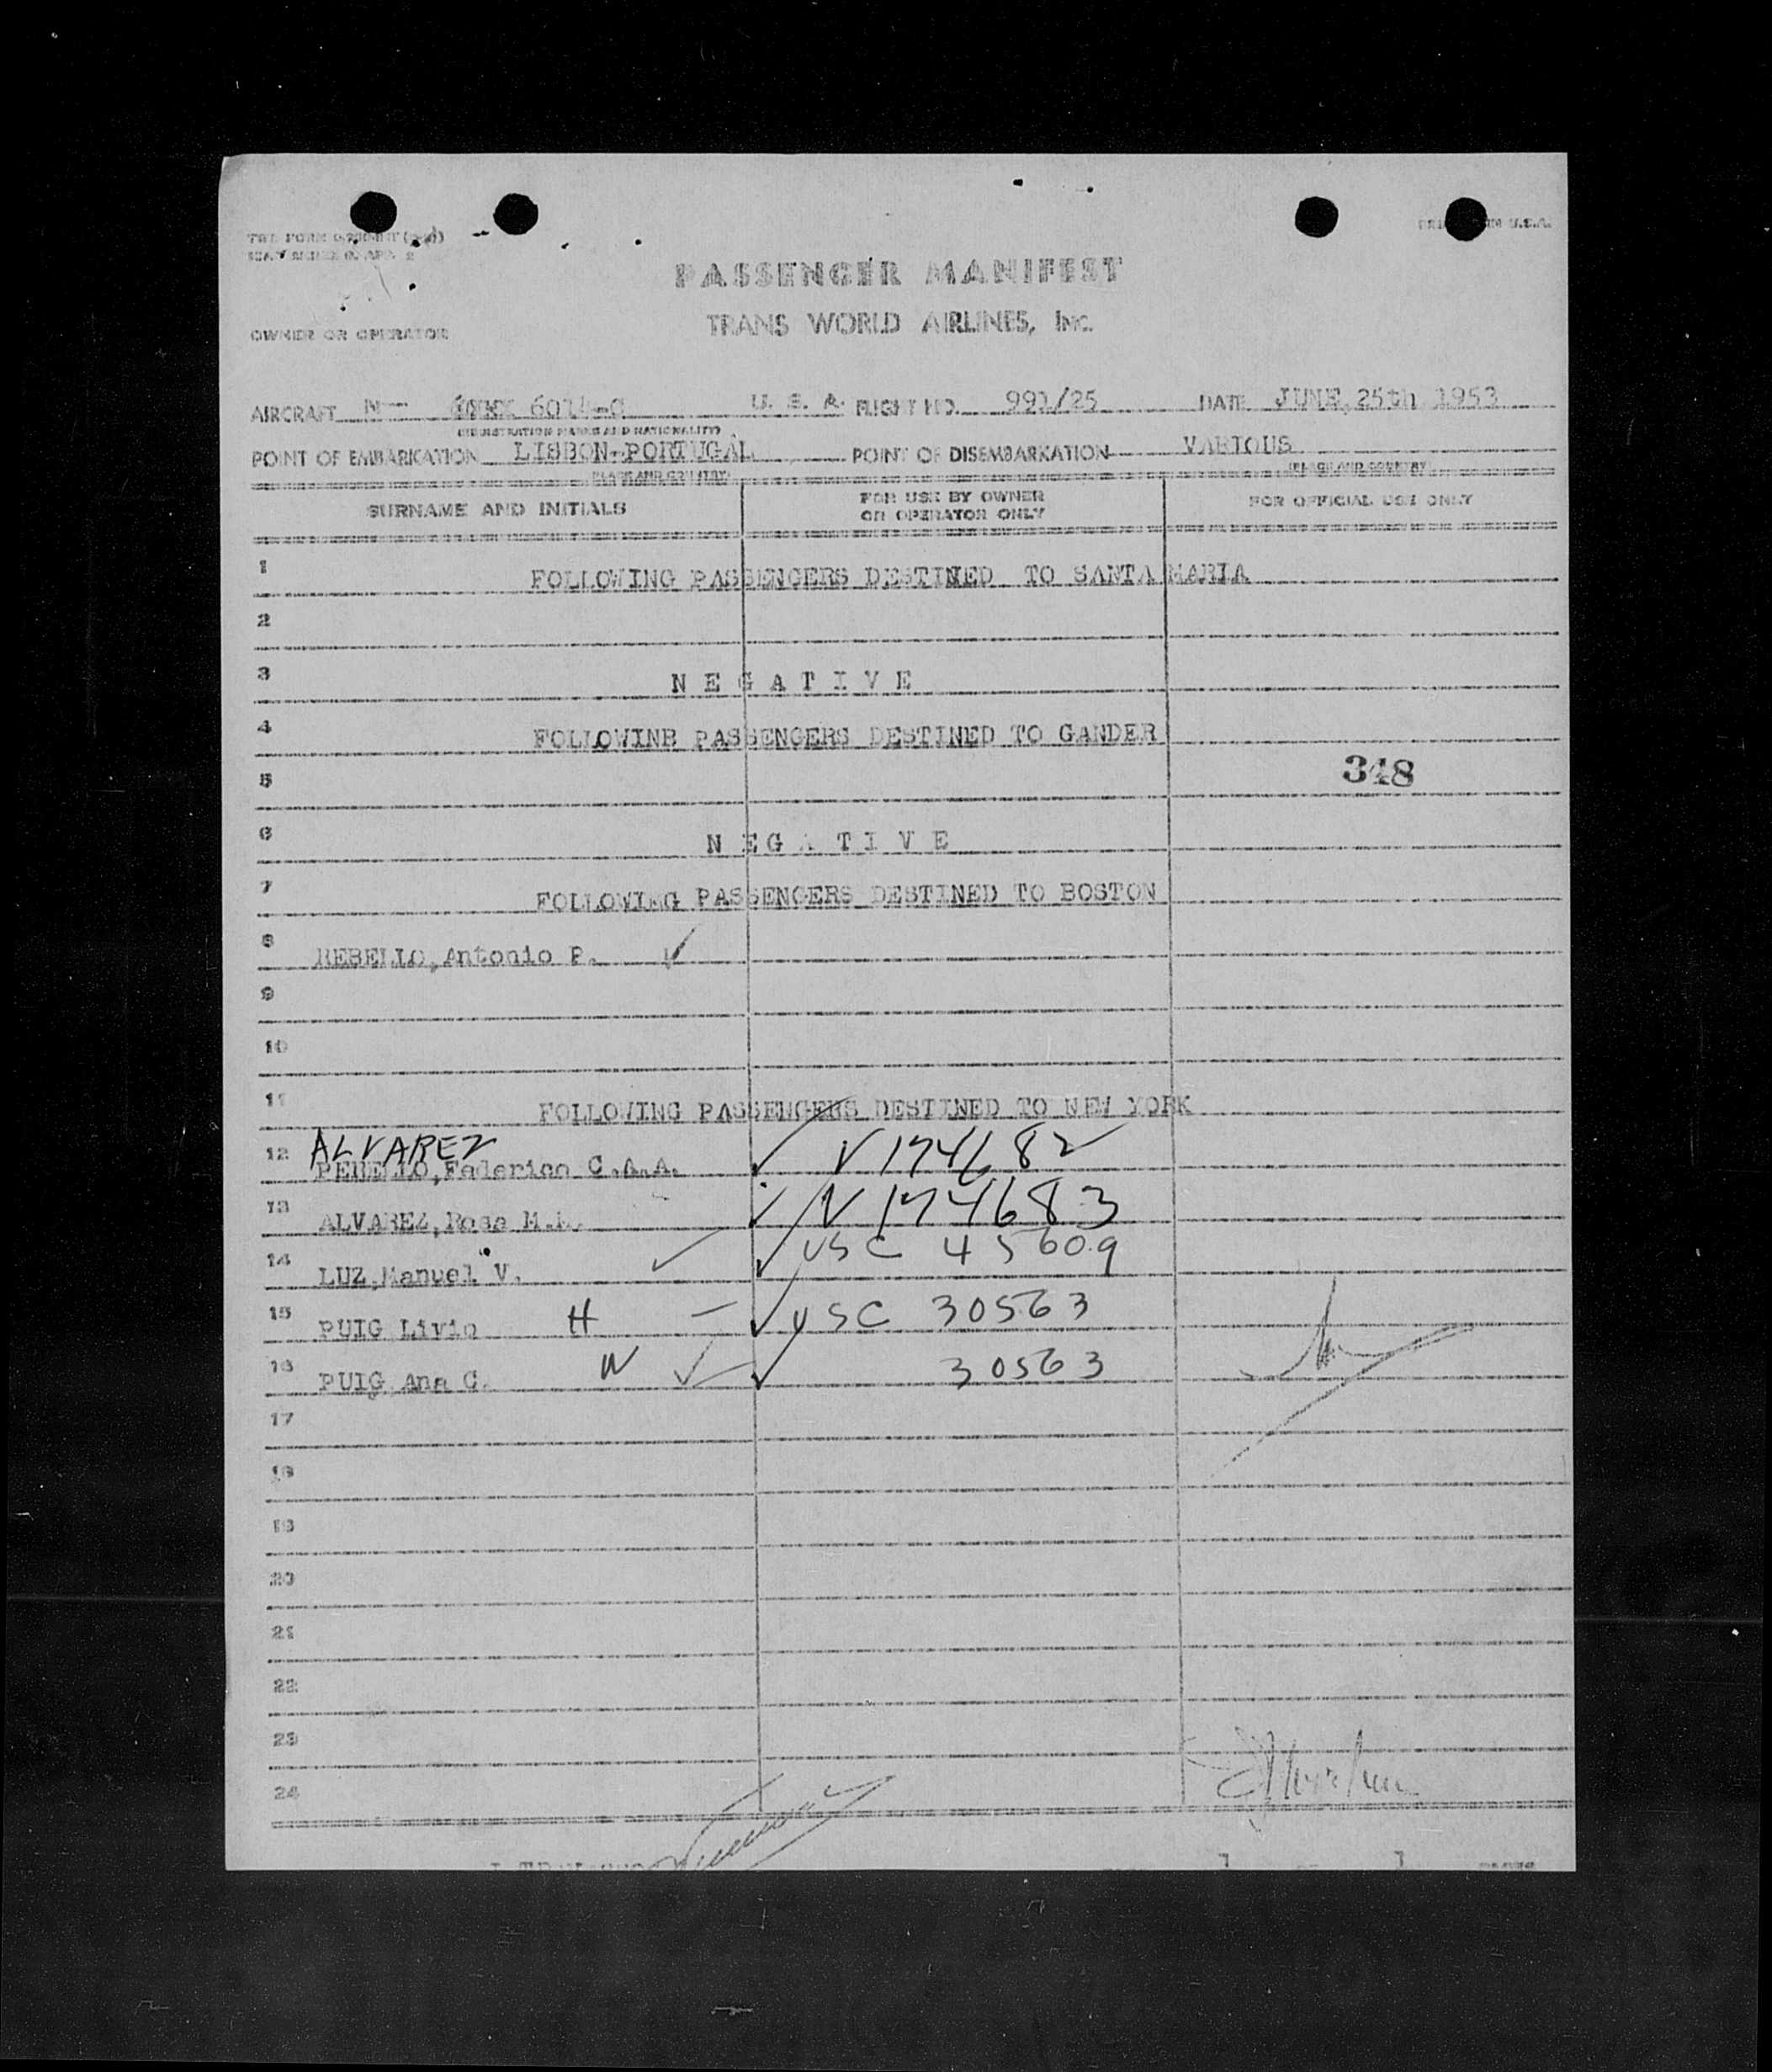 PASSENGER MANIFEST
TRANS WORLD AIRLINES, INC.
OWNER OR OPERATOR
AIRCRAFT N- 6014-C U. S. A. FLIGHT NO. 991/25 DATE JUNE 25th 1953
(REGISTRATION MARKS AND NATIONALITY)
POINT OF EMBARKATION LISBON-PORTUGAL POINT OF DISEMBARKATION VARIOUS
(PLACE AND COUNTRY) (PLACE AND COUNTRY)
SURNAME AND INITIALS FOR USE BY OWNER OR OPERATOR ONLY FOR OFFICIAL USE ONLY
1 FOLLOWING PASSENGERS DESTINED TO SANTA MARIA
2
3 N E G A T I V E
4 FOLLOWINB PASSENGERS DESTINED TO GANDER
5 348
6 N E G A T I V E
7 FOLLOWING PASSENGERS DESTINED TO BOSTON
8 REBELLO,Antonio P. ✓
9
10
11 FOLLOWING PASSENGERS DESTINED TO NEW YORK
ALVAREZ
12 REBELLO,Federico C.A.A. ✓ V 174682
13 ALVAREZ,Rosa M. ✓ V 174683
14 LUZ,Manuel V. ✓ ✓ USC 45609
15 PUIG Livio H ✓ USC 30563
16 PUIG Ana C. W ✓ ✓ 30563
17
18
19
20
21
22
23
24
1 1 PAGES